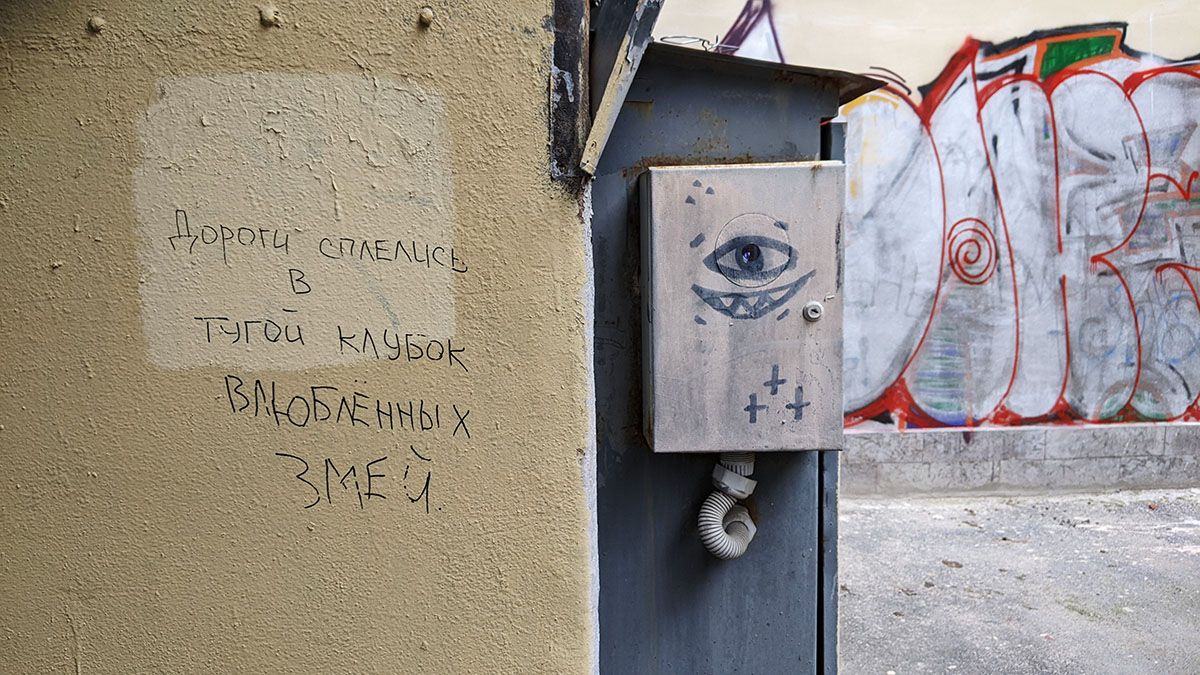 Дороги сплелись
в
тугой клубок
влюблённых
змей.